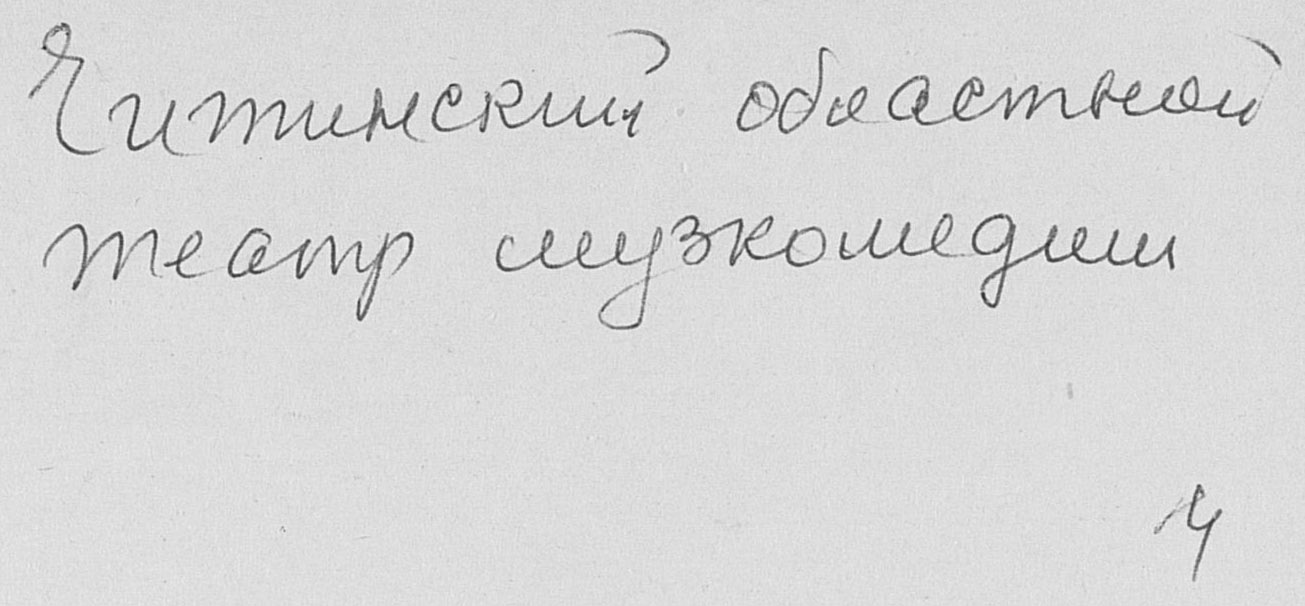 Читинский областной
театр музкомедии
4